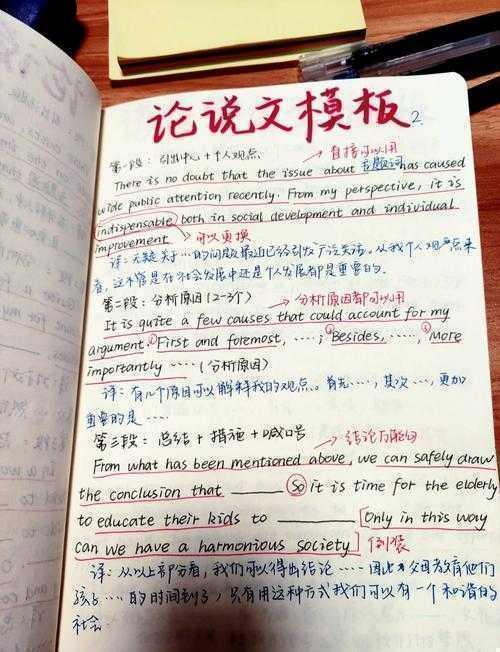 论说文模板 2
第一段：引出中心+个人观点 → 直接可以用
There is no doubt that the issue about 主题词 has caused
wide public attention recently. From my perspective, it is
indispensable both in social development and individual
improvement → 可以更换
译：无疑关于…的问题最近已经引发广泛关注。从我个人观点来
看，这不管是在社会发展中还是个人发展都是重要的。
第二段：分析原因(2-3个) → 分析原因都可以用
It is quite a few causes that could account for my
argument. ① First and foremost, ……; ② Besides, ……, ③ More
importantly ……(分析原因)
译：有几个原因可以解释我的观点。首先…，其次…，更加
重要的是……
第三段：总结+措施+喊口号 → 结论万能句
From what has been mentioned above, we can safely draw
the conclusion that ______ So it is time for the elderly
to educate their kids to ________ [Only in this way
can we have a harmonious society] 倒装
译：从以上部分看，我们可以得出结论……因此父母教育他们
孩子…的时间到了，只有用这种方式我们可以有一个和谐的
社会